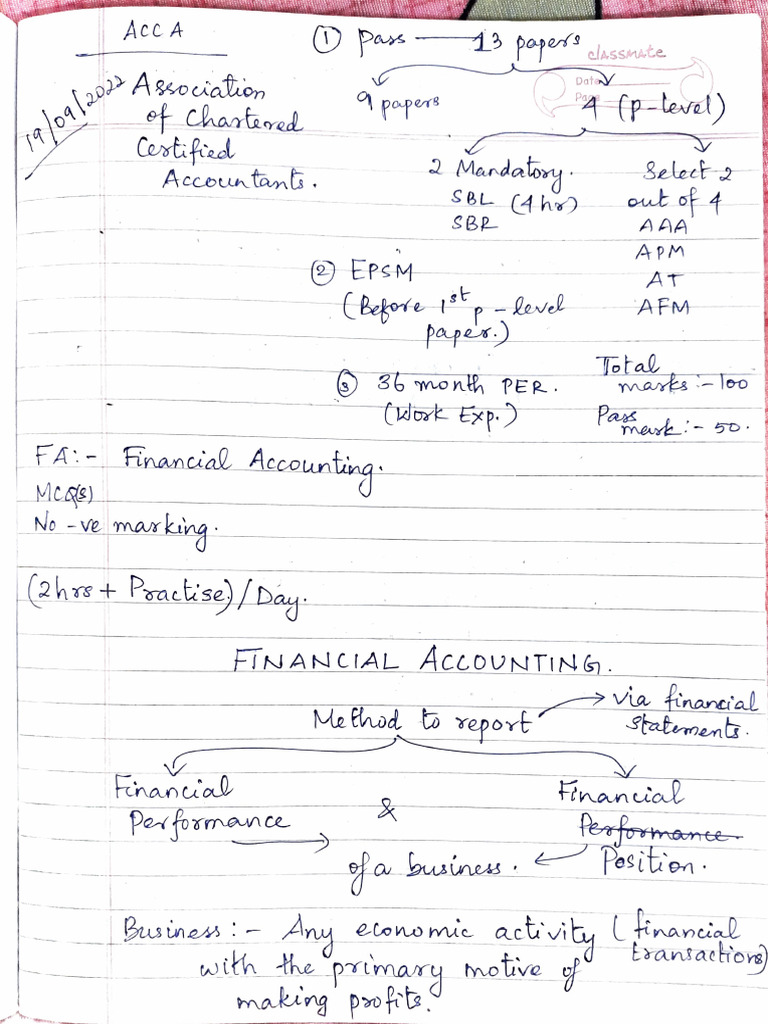 ACCA
① Pass — 13 papers
classmate
Date
Page
19/09/2022
Association
of Chartered
Certified
Accountants.
9 papers
4 (p-level)
2 Mandatory.
SBL (4hr)
SBR
Select 2
out of 4
AAA
APM
AT
AFM
② EPSM
(Before 1st p-level
paper.)
③ 36 month PER.
(Work Exp.)
Total
marks:-100
Pass
mark:- 50.
FA:- Financial Accounting.
MCQ(s)
No -ve marking.
(2hrs + Practise)/Day.
FINANCIAL ACCOUNTING.
Method to report
via financial
statements.
Financial
Performance
&
Financial
Performance
Position.
of a business.
Business:- Any economic activity (financial
transactions)
with the primary motive of
making profits.